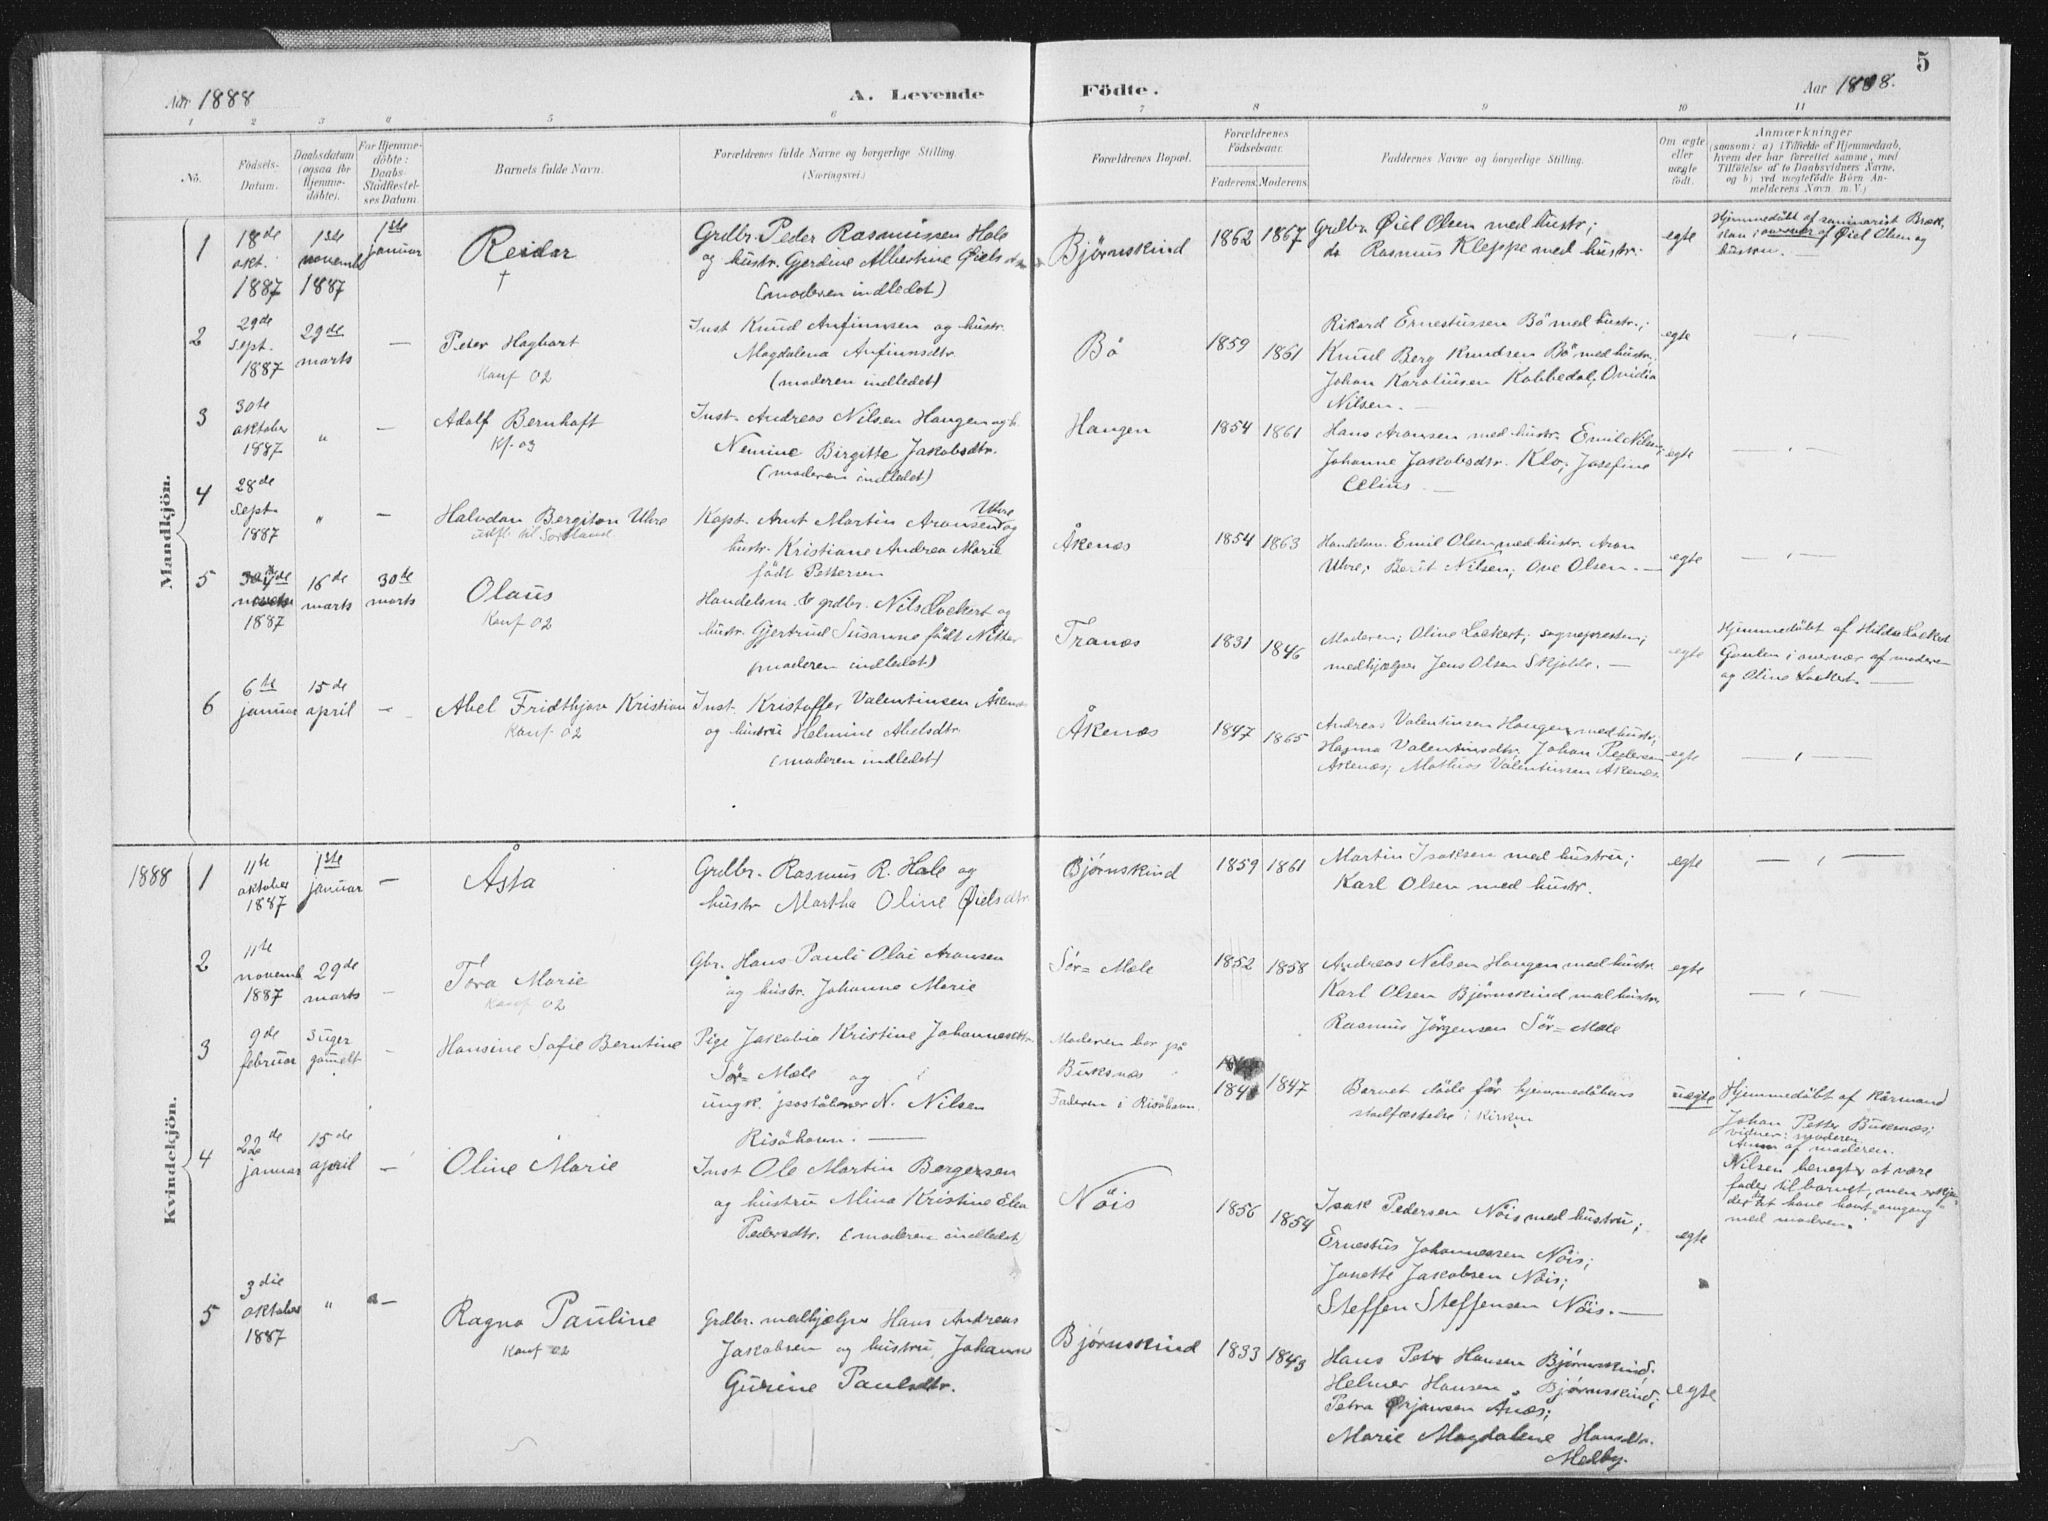 5
Aar 1888
A. Levende
Födte.
Aar 1888.
1 2 3 4 5 6 7 8 9 10 11
No.
Födsels-
Datum.
Daabsdatum
(ogsaa for
Hjemme-
döbte).
For Hjemme-
döbte:
Daabs-
Stadfæstel-
ses Datum.
Barnets fulde Navn.
Forældrenes fulde Navne og borgerlige Stilling.
(Næringsvei.)
Forældrenes Bopæl.
Forældrenes
Födselsaar.
Faderens. Moderens.
Faddernes Navne og borgerlige Stilling.
Om ægte
eller
uægte
födt.
Anmærkninger
(saasom: a) i Tilfælde af Hjemmedaab,
hvem der har forrettet samme, med
Tilföielse af to Daabsvidners Navne,
og b) ved uægtefödte Börn An-
melderens Navn m. V.)
Mandkjön.
1
18de
okt.
1887
1ste
novemb
1887
1ste
januar
Reidar
†
Grdbr. Peder Rasmussen Hole
og hustr. Gjerdine Albertine Øiels
(moderen indledet)
Bjørnskind
1862 1867
Grdbr Øiel Olsen med hustr;
do Rasmus Kleppe med hustr.
egte
Hjemmedøbt af seminarist Bræk
kan i nærvær af Øiel Olsen og
hustru. —
2
29de
sept.
1887
29de
marts
—
Peter Hagbart
Konf 02
Inst Knud Anfinnsen og hustr.
Magdalena Anfinnsdtr.
(moderen indledet)
Bö
1859 1861
Rikard Ernestussen Bö med hustr.;
Knud Berg Knudsen Bö med hustr.
Johan Karolinsen Kobbedal; Ovidia
Nilsen. —
egte
— " —
3
30te
oktober
1887
"
—
Adolf Bernhoft
Kf. 03
Inst. Andreas Nilsen Haugen og h.
Nemine Birgitte Jakobsdtr.
(moderen indledet)
Haugen
1854 1861
Hans Aronsen med hustr. Emil Nilsen,
Johanne Jakobsdtr. Klo; Josefine
Celius. —
egte
— " —
4
28de
Sept.
1887
"
—
Halvdan Bergiton Uhre
utfl. til Sortland
Kapt. Arnt Martin Aronsen Uhre og
hustr. Kristiane Andrea Marie
født Pettersen
Åkenæs
1854 1863
Handelsm. Emil Olsen med hustr. Aron
Uhre; Berit Nilsen; Ove Olsen. —
egte
— " —
5
1887
16de
marts
30te
marts
Olaus
Konf 02
Handelsm. & grdbr. Nils Lockert og
hustr. Gjertrud Susanne født Nitter
(moderen indledet)
Tranæs
1831 1846
Moderen; Oline Lockert; sognepresten;
medhjælper Jens Olsen Skjolde. —
egte
Hjemmedøbt af Hilda Lockert
Gaulen i nærvær af moderen
og Oline Lockert. —
6
6te
januar
15de
april
—
Abel Fridthjov Kristian
Konf 02
Inst. Kristoffer Valentinsen Åkenæs
og hustru Helmine Abelsdtr.
(moderen indledet)
Åkenæs
1847 1865
Andreas Valentinsen Haugen med hustr;
Hagma Valentinsdtr. Johan Pedersen
Åkenæs; Mathias Valentinsen Åkenæs.
egte
— " —
1888
Kvindekjön.
1
11te
oktober
1887
1ste
januar
—
Åsta
Grdbr. Rasmus R. Hole og
hustr Martha Oline Øielsdtr
Bjørnskind
1859 1861
Martin Isaksen med hustru;
Karl Olsen med hustr.
egte
— " —
2
11te
novemb
1887
29de
marts
—
Tora Marie
Konf 02
Gbr. Hans Pauli Olai Aronsen
og hustr. Johanne Marie
Sör=Mele
1852 1858
Andreas Nilsen Haugen med hustr
Karl Olsen Bjørnskind med hustr
Rasmus Jörgensen Sör=Mele
egte
— " —
3
9de
februar
3 uger
gamelt
—
Hansine Sofie Berntine
Pige Jakobia Kristine Johannesdtr
Sör=Mele og
ungk. poståbner N. Nilsen
Risöhavn. —
Moderen bor på
Buksnæs
Faderen i Risöhavn.
1847
Barnet döde för hjemmedåbens
stadfæstelse i kirken
uegte
Hjemmedöbt af Kårmand
Johan Petter Buksnæs;
vidner: moderen
Anm af moderen.
Nilsen benegter at være
fader til barnet, men erkjen-
der at have havt "omgang"
med moderen.
4
22de
januar
15de
april
—
Oline Marie
Inst Ole Martin Bergersen
og hustru Mina Kristine Elen
Pedersdtr. (moderen indledet)
Nöis
1856 1854
Isak Pedersen Nöis med hustru;
Ernestus Johannessen Nöis;
Janette Jakobsen Nöis;
Steffen Steffensen Nöis. —
egte
5
3die
oktober
1887
"
—
Ragna Pauline
Konf 02
Grdbr. medhjælper Hans Andreas
Jakobsen og hustru, Johanne
Gurine Paulsdtr.
Bjørnskind
1833 1843
Hans Peter Hansen Bjørnskind;
Helmer Hansen, Bjørnskind;
Petra Ørjansen Ånæs;
Marie Magdalene Hansdtr.
Melby.
egte